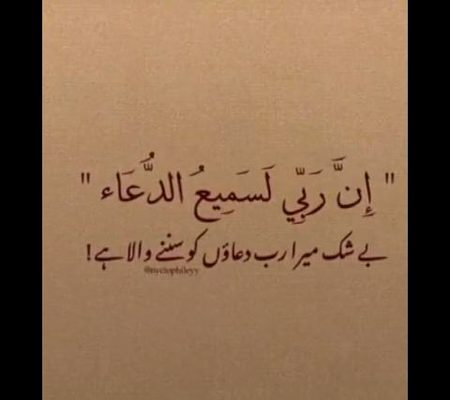 " إِنَّ رَبِّي لَسَمِيعُ الدُّعَاء "
بے شک میرا رب دعاؤں کو سننے والا ہے!
@nyctophileyy